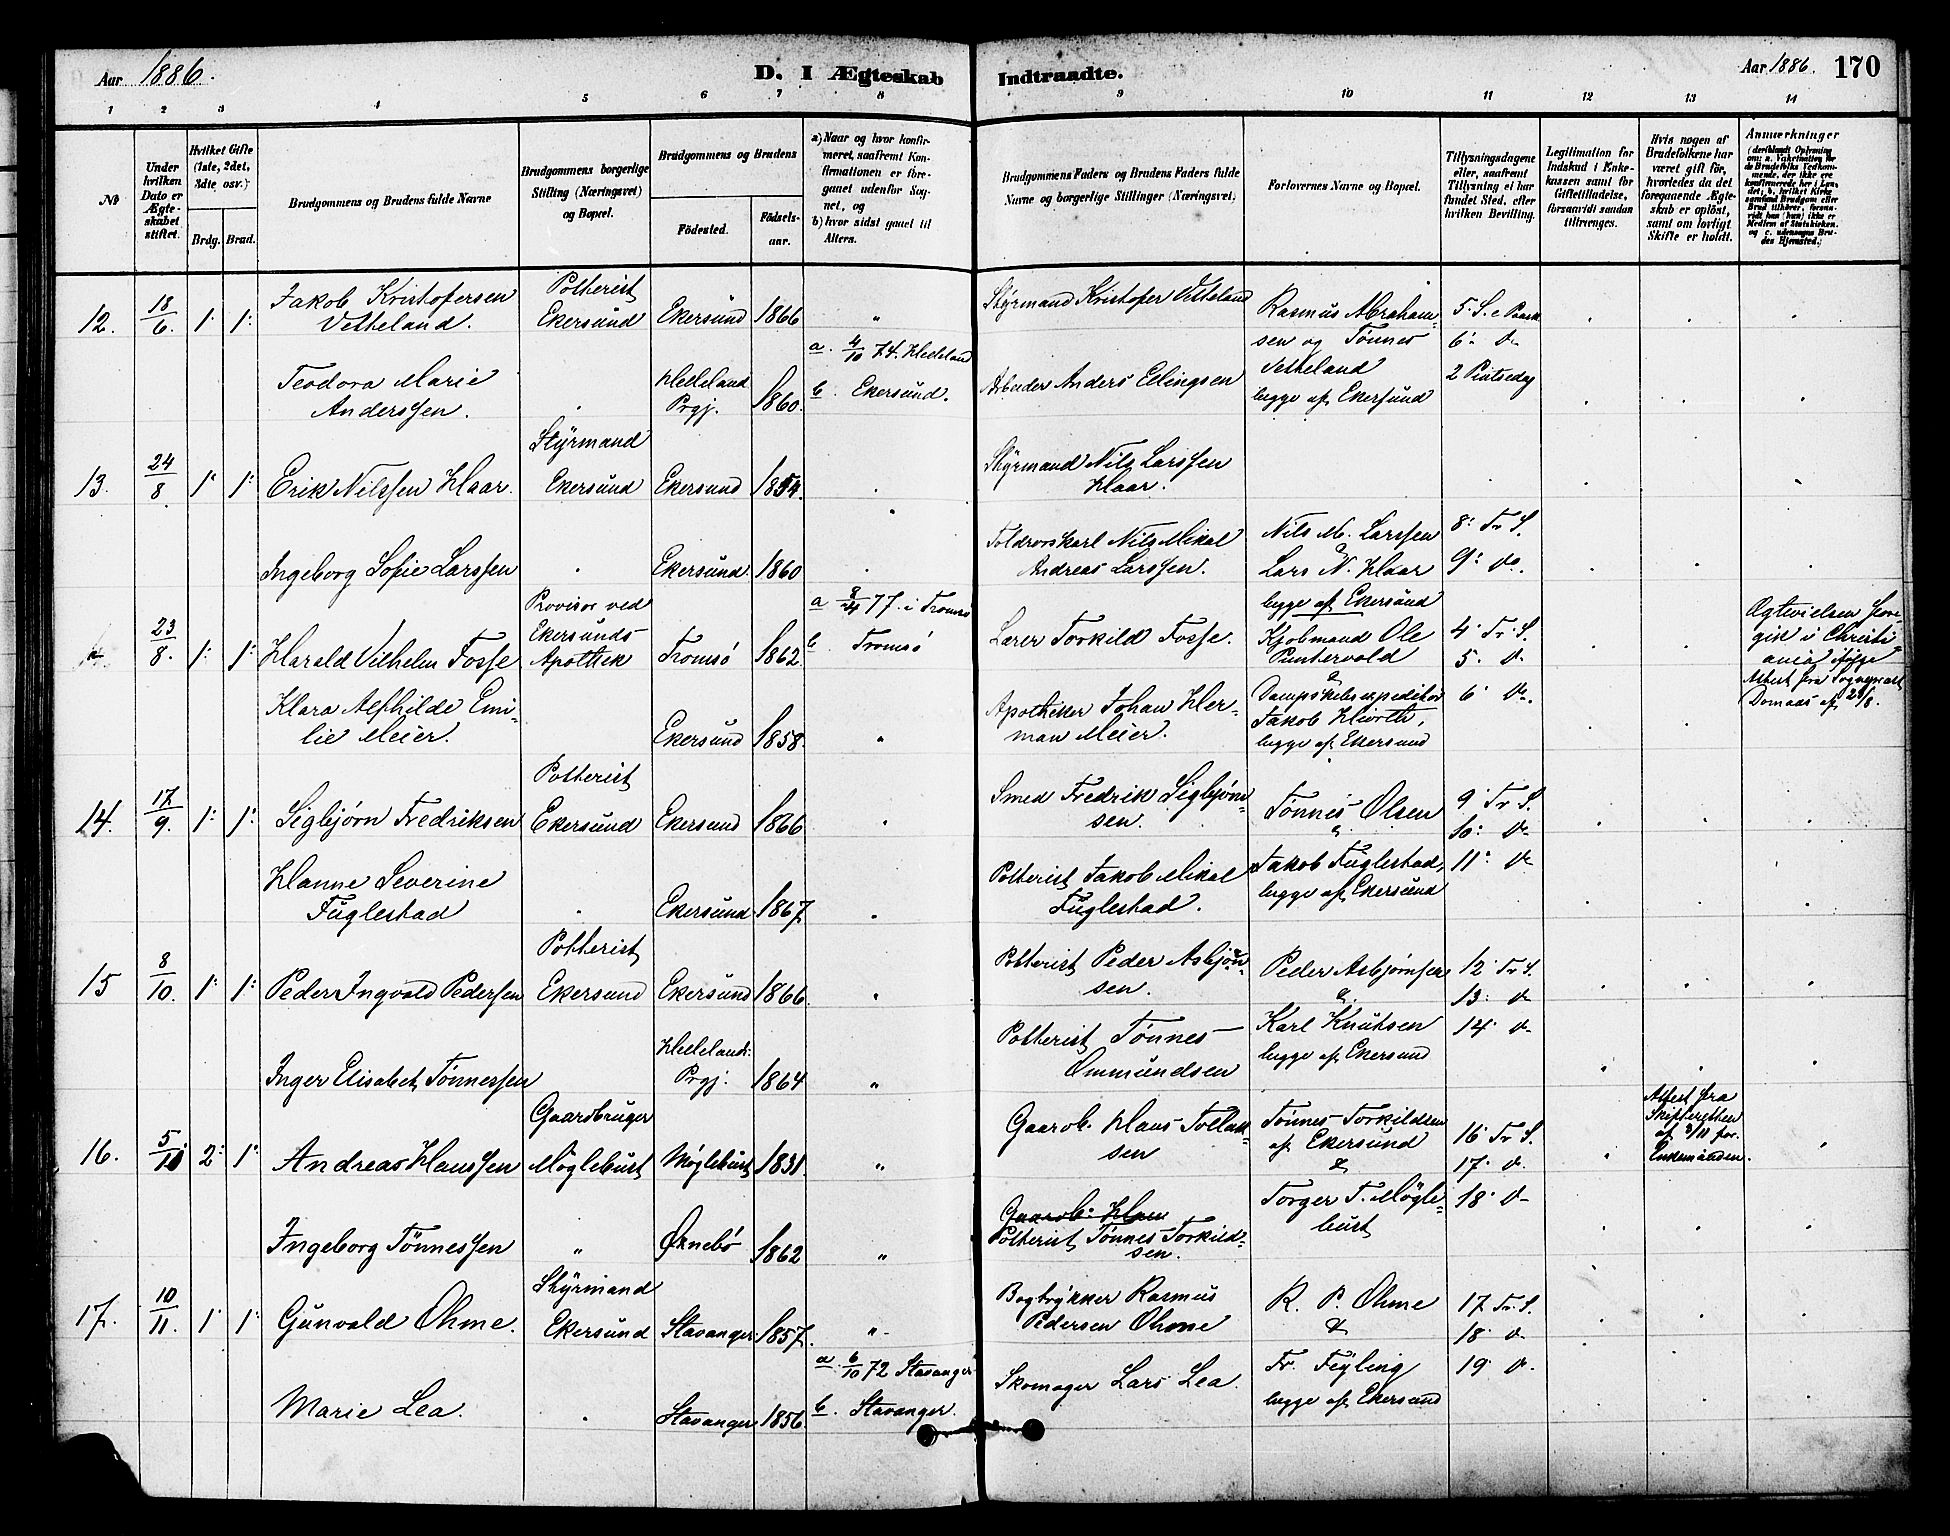 Aar 1886.
D. I Ægteskab Indtraadte.
Aar 1886. 170
1 2 3 4 5 6 7 8 9 10 11 12 13 14
№
Under hvilken Dato er Ægteskabet stiftet.
Hvilket Gifte (1ste, 2det, 3die osv.)
Brdg. Brud.
Brudgommens og Brudens fulde Navne
Brudgommens borgerlige Stilling (Næringsvei) og Bopæl.
Brudgommens og Brudens
Födested. Födselsaar.
a) Naar og hvor konfirmeret, saafremt Konfirmationen er foregaaet udenfor Sognet, og
b) hvor sidst gaaet til Alters.
Brudgommens Faders og Brudens Faders fulde Navne og borgerlige Stillinger (Næringsvei.)
Forlovernes Navne og Bopæl.
Tillysningsdagene eller, saafremt Tillysning ei har fundet Sted, efter hvilken Bevilling.
Legitimation for Indskud i Enkekassen samt for Giftetilladelse, forsaavidt saadan tiltrænges.
Hvis nogen af Brudefolkene har været gift för, hvorledes da det foregaaende Ægteskab er oplöst, samt om lovligt Skifte er holdt.
Anmærkninger
12. 18/6. 1. 1. Jakob Kristofersen Vetteland. Potterist Ekersund Ekersund 1866 "
Styrmand Kristofer Vetteland
Rasmus Abrahamsen og Tønnes Vetteland begge af Ekersund
5. S. e Paask
6. do
2 Pintsedag
Teodora Marie Anderssen. Helleland Prgj. 1860. a. 4/10 74. Helleland
b. Ekersund.
Arbeider Anders Edingsen
13. 24/8 1. 1. Erik Nilssen Haar. Styrmand Ekersund Ekersund 1854.
Styrmand Nils Larssen Haar.
Ingeborg Sofie Larssen Ekersund 1860
Toldrorskarl Nils Mikal Andreas Larssen.
Nils M. Larssen & Lars N. Haar begge af Ekersund
8. Tr S.
9. do.
23/8. 1. 1. Harald Vilhelm Fosse Provisor ved Ekersunds Apothek Tromsö 1862. a 8/4 77. i Tromsö
b Tromsö
Lærer Torkild Fosse.
Kjøbmand Ole Puntervold & Dampskibsexpeditør Jakob Hiorth, begge af Ekersund
4. Tr. S.
5. do
6. do.
Ægtevielsen foregik i Christiania ifölge Attest fra Sogneprest Domaas af 24/8.
Klara Alfhilde Emilie Meier. Ekersund 1858. "
Apotheker Johan Herman Meier.
14. 17/9. 1. 1. Sigbjørn Fredriksen Potterist Ekersund Ekersund 1866
Smed Fredrik Sigbjørnsen.
Tönnes Olsen & Jakob Fuglestad, begge af Ekersund
9. Tr S.
10. do
11. do
Hanne Severine Fuglestad Ekersund 1867
Potterist Jakob Mikal Fuglestad.
15 8/10. 1. 1. Peder Ingvald Pedersen Potterist Ekersund Ekersund 1866. "
Potterist Peder Asbjønsen.
Peder Asbjørnsen & Karl Knutsen begge af Ekersund
12 Tr S.
13. do
14. do
Inger Elisabet Tønnessen Hellelands Prgj. 1864 "
Potterist Tønnes Ommundsen
16. 5/11 2. 1. Andreas Hanssen Gaardbruger Möglebust Möglebust 1831. "
Gaardb. Hans Tollaksen
Tønnes Torkildsen af Ekersund & Torger T. Möglebust
16. Tr S.
17. do.
18. do
Attest fra Skifteretten af 3/11 for Enkemanden.
Ingeborg Tönnessen " Øknebö 1862 "
Gaardb. Hans
Potterist Tønnes Torkildsen.
17. 10/11. 1. 1. Gunvald Ohme. Styrmand Ekersund Stavanger 1857. "
Bogtrykker Rasmus Pedersen Ohme
R. P. Ohme & Fr. Feyling begge af Ekersund
17. Tr. S.
18. do
19. do.
Marie Lea. Stavanger 1856. a. 6/10 72 Stavanger
b. Stavanger.
Skomager Lars Lea.